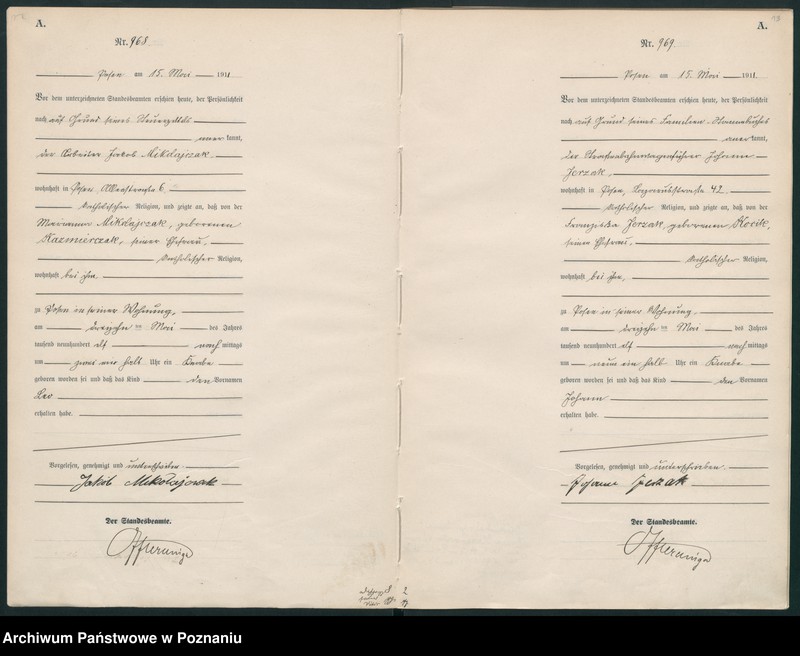 A.
Nr. 968.
Posen am 15. Mai 1911
Vor dem unterzeichneten Standesbeamten erschien heute, der Persönlichkeit
nach auf Grund seines
kannt,
der Arbeiter Jakob Mikolajczak,
wohnhaft in Posen, 6,
katholischer Religion, und zeigte an, daß von der
Marianna Mikolajczak, geborenen
Kazmierczak, seiner Ehefrau,
katholischer Religion,
wohnhaft bei ihm,
zu Posen in seiner Wohnung,
am dreizehn ten Mai des Jahres
tausend neunhundert elf nach mittags
um zwei ein halb Uhr ein Knabe
geboren worden sei und daß das Kind den Vornamen
Leo
erhalten habe.
Vorgelesen, genehmigt und unterschrieben
Jakób Mikołajczak
Der Standesbeamte.
A.
Nr. 969.
Posen am 15. Mai 1911
Vor dem unterzeichneten Standesbeamten erschien heute, der Persönlichkeit
nach auf Grund seines Familien-Stammbuches
anerkannt,
der Strassenbahnwagenführer Johann
Jerzak,
wohnhaft in Posen, 42,
katholischer Religion, und zeigte an, daß von der
Franziska Jerzak, geborenen Kocik,
seiner Ehefrau,
katholischer Religion,
wohnhaft bei ihm,
zu Posen in seiner Wohnung,
am dreizehn ten Mai des Jahres
tausend neunhundert elf nach mittags
um neun ein halb Uhr ein Knabe
geboren worden sei und daß das Kind den Vornamen
Johann
erhalten habe.
Vorgelesen, genehmigt und unterschrieben
Johann Jerzak
Der Standesbeamte.
Archiwum Państwowe w Poznaniu